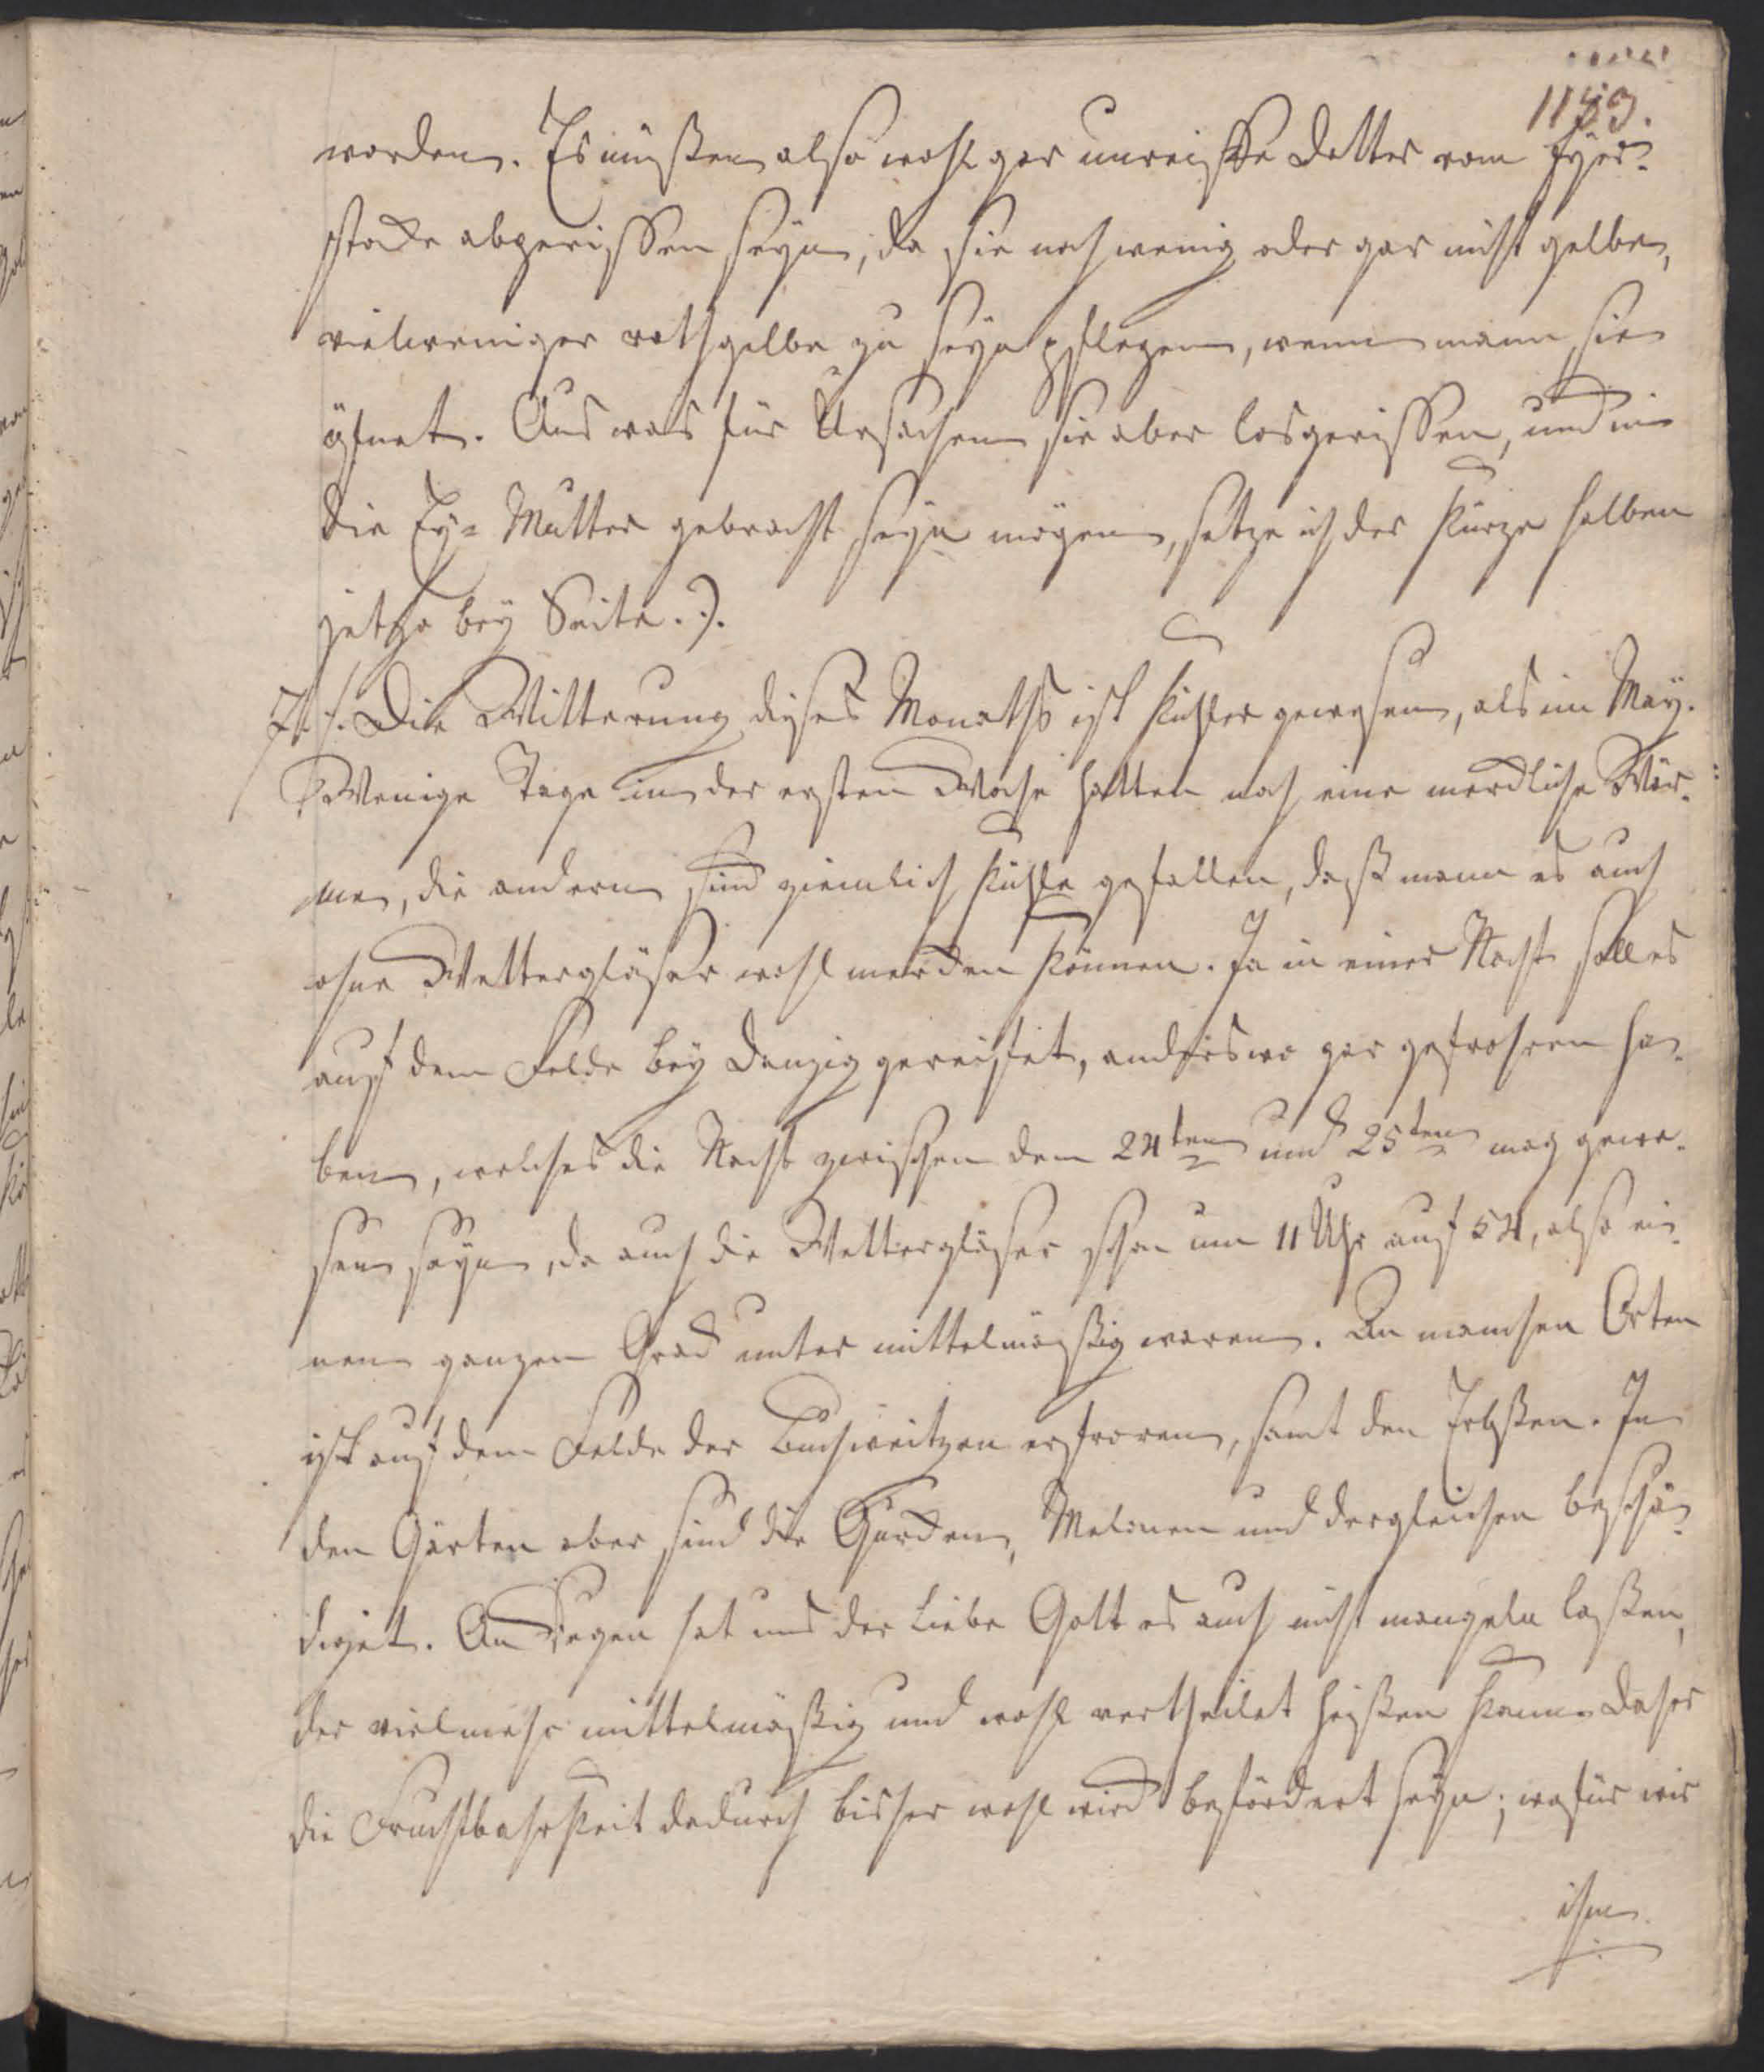 1153.
worden. Es müßen also wohl gar unreiffe Dotter vom Eyer-
stocke abgerissen seyn, da sie noch wenig oder gar nicht gelbe,
vielweniger rothgelbe zu seyn pflegen, wenn mann sie
öfnet. Aus was für Ursachen sie aber losgerissen, und in
die Ey-Mutter gebracht seyn mögen, setze ich der Kürze halben
jetzo bey Seite.).
7./. Die Witterung dieses Monaths ist kühler gewesen, als im May.
Wenige Tage in der ersten Woche hatten noch eine merckliche Wär-
me, die andern sind ziemlich kühle gefallen, daß mann es auch
ohne Wettergläser wohl mercken können. Ja in einer Nacht soll es
auf dem Felde bey Danzig gereifet, anderswo gar gefrohren ha-
ben, welches die Nacht zwischen dem 24ten und 25ten mag gewe-
sen seyn, da auch die Wettergläser schon um 11 Uhr auf 54, also ei-
nen ganzen Grad unter mittelmäßig waren. An manchen Orten
ist auf dem Felde der Buchweitzen erfroren, samt den Erbßen. In
den Gärten aber sind die Gurcken, Melonen und dergleichen beschä-
diget. An Regen hat uns der Liebe Gott es auch nicht mangeln laßen,
der vielmehr mittelmäßig und wohl vertheilet heißen kann. Daher
die Fruchtbahrkeit dadurch bisher wohl wird befördert seyn; wofür wir
ihm